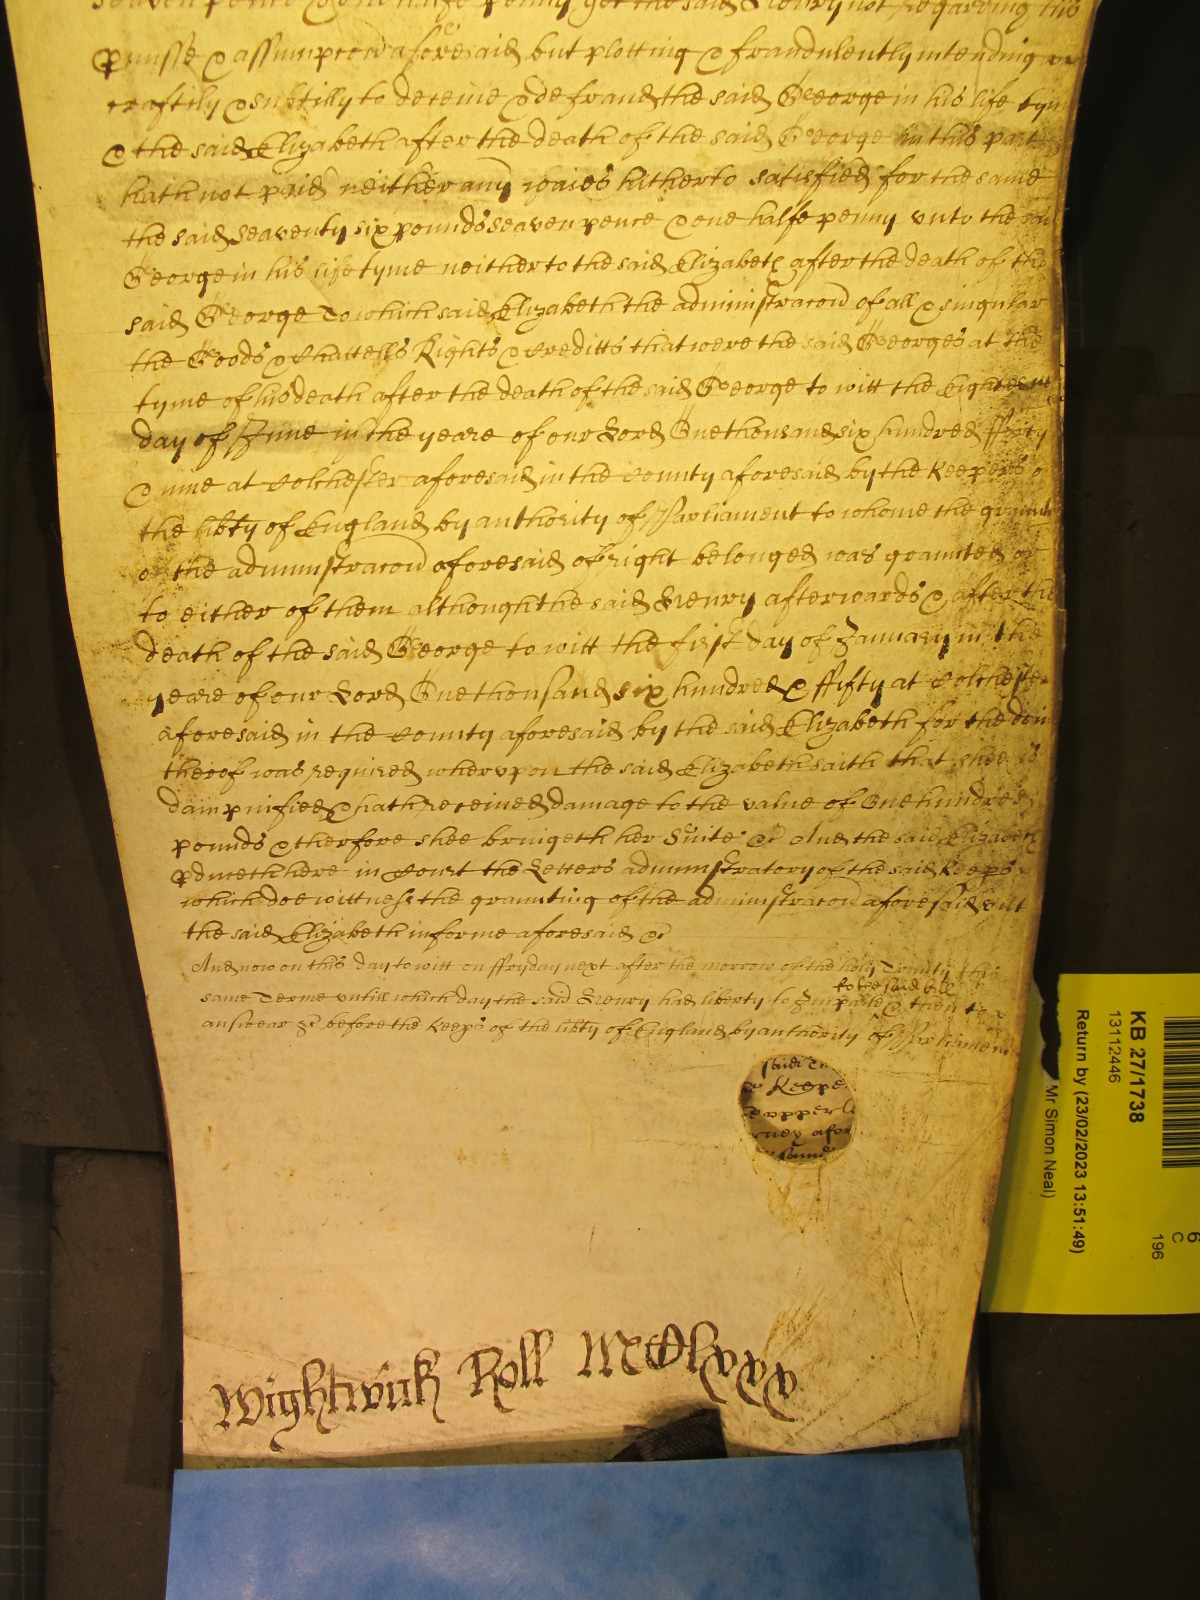 seaven pence & one halfe penny yet the said Henry not regarding his
pmisse & assumpcon aforesaid but plotting & fraudulently intending
craftily & subtilly to deceive & defraud the said George in his life tym
& the said Elizabeth after the death of the said George in this part
hath not paid neither any waies hitherto satisfied for the same
the said seaventy six pounds seaven pence & one halfe penny vnto the said
George in his life tyme neither to the said Elizabeth after the death of the
said George To which said Elizabeth the administracon of all & singular
the Goods & Chattells Rights & Creditts that were the said Georges at the
tyme of his death after the death of the said George to witt the Eighteenth
day of June in the yeare of our Lord One thousand six hundred fforty
& nine at Colchester aforesaid in the County aforesaid by the Keepers o
the libty of England by authority of Parliament to whome the graunt
of the administracon aforesaid of right belonged was graunted or
to either of them although the said Henry afterwards & after the
death of the said George to witt the first day of January in the
yeare of our Lord One thousand six hundred & ffifty at Colchester
aforesaid in the County aforesaid by the said Elizabeth for the doin
thereof was required wherevpon the said Elizabeth saith that shee is
dampnified & hath received damage to the value of One hundred
pounds & therfore shee bringeth her Suite &c And the said Elizabeth
pduceth here in Court the Letters administratory of the said Keeps
which doe wittnesse the graunting of the administracon aforesaid vnt
the said Elizabeth in forme aforesaid &c
And now on this day to witt on ffryday next after the morrow of the holy Trinity this
same Terme vntill which day the said Henry had liberty to Imparle to the said bill & then to
answear &c before the Keeps of the libty of England by authority of Parliament
said
Keepe
vpper
afor
Wightwick Roll MCCCCCClxxx
KB 27/1738
13112446
Return by (23/02/2023 13:51:49)
Mr Simon Neal)
6
C
196